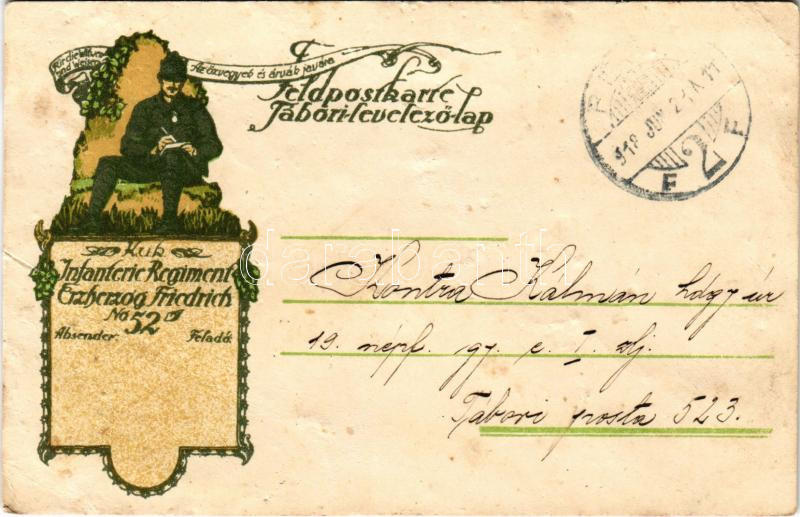 Für die Witwen
und Waisen
Az özvegyek és árvák javára
Feldpostkarte
Tábori-levelező-lap
918 JUN
F
2
F
K.u.k.
Infanterie Regiment
Erzherzog Friedrich
No 52
Absender: Feladó:
Kontra Kálmán hdgy úr
19. népf. gy. e. I. zlj.
Tábori posta 523.
darabanth